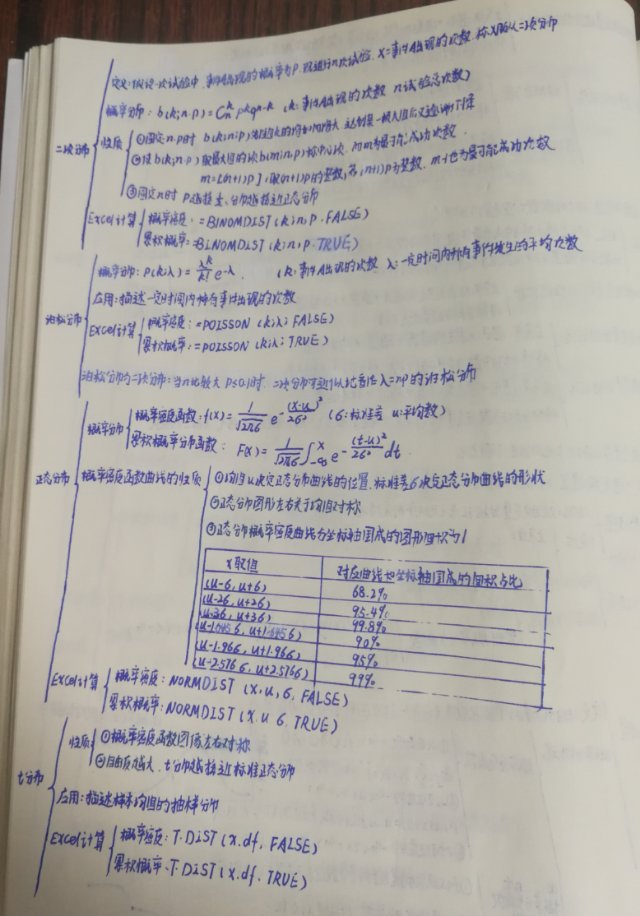 定义:假设一次试验中,事件A出现的概率为P,现进行n次试验,X=事件A出现的次数,称X服从二项分布
概率分布:b(k;n,p)=Cₙᵏ pᵏqⁿ⁻ᵏ (k:事件A出现的次数 n试验总次数)
二项分布
性质
①固定n,p时 b(k;n;p)
②使b(k;n,p)取最大值的项b(m;n,p)称中心项,而m为最可能成功次数
m=[(n+1)p],取(n+1)p的整数,若(n+1)p为整数,m-1也为最可能成功次数
③固定n时 p越接近 分布越接近正态分布
Excel计算
概率密度:=BINOMDIST(k;n,p,FALSE)
累积概率:=BINOMDIST(k;n,p,TRUE)
概率分布:P(k;λ)=λᵏ/k! e^-λ, (k:事件A出现的次数 λ:一定时间内
事件发生的平均次数
应用:描述一定时间内
事件出现的次数
泊松分布
Excel计算
概率密度:=POISSON(k;λ;FALSE)
累积概率:=POISSON(k;λ;TRUE)
泊松分布与二项分布:当n比较大 P≤0.1时,二项分布可近似
λ=np的泊松分布
概率分布
概率密度函数:f(x)=1/√2πσ e^-(x-u)²/2σ² (σ:标准差 u:平均数)
累积概率分布函数:F(x)=1/√2πσ ∫₋∞ˣ e^-(t-u)²/2σ² dt
正态分布
概率密度函数曲线的性质
①均值u决定正态分布曲线的位置,标准差σ决定正态分布曲线的形状
②正态分布图形左右关于均值对称
③正态分布概率密度曲线与坐标轴围成的图形面积为1
x取值 对应曲线与坐标轴围成的面积占比
(u-σ, u+σ) 68.2%
(u-2σ, u+2σ) 95.4%
(u-3σ, u+3σ) 99.8%
(u-1.645σ, u+1.645σ) 90%
(u-1.96σ, u+1.96σ) 95%
(u-2.576σ, u+2.576σ) 99%
Excel计算
概率密度:NORMDIST(x,u,σ,FALSE)
累积概率:NORMDIST(x,u,σ,TRUE)
性质
①概率密度函数图像左右对称
②自由度越大,t分布越接近标准正态分布
t分布
应用:描述样本均值的抽样分布
Excel计算
概率密度:T.DIST(x.df,FALSE)
累积概率:T.DIST(x.df.TRUE)